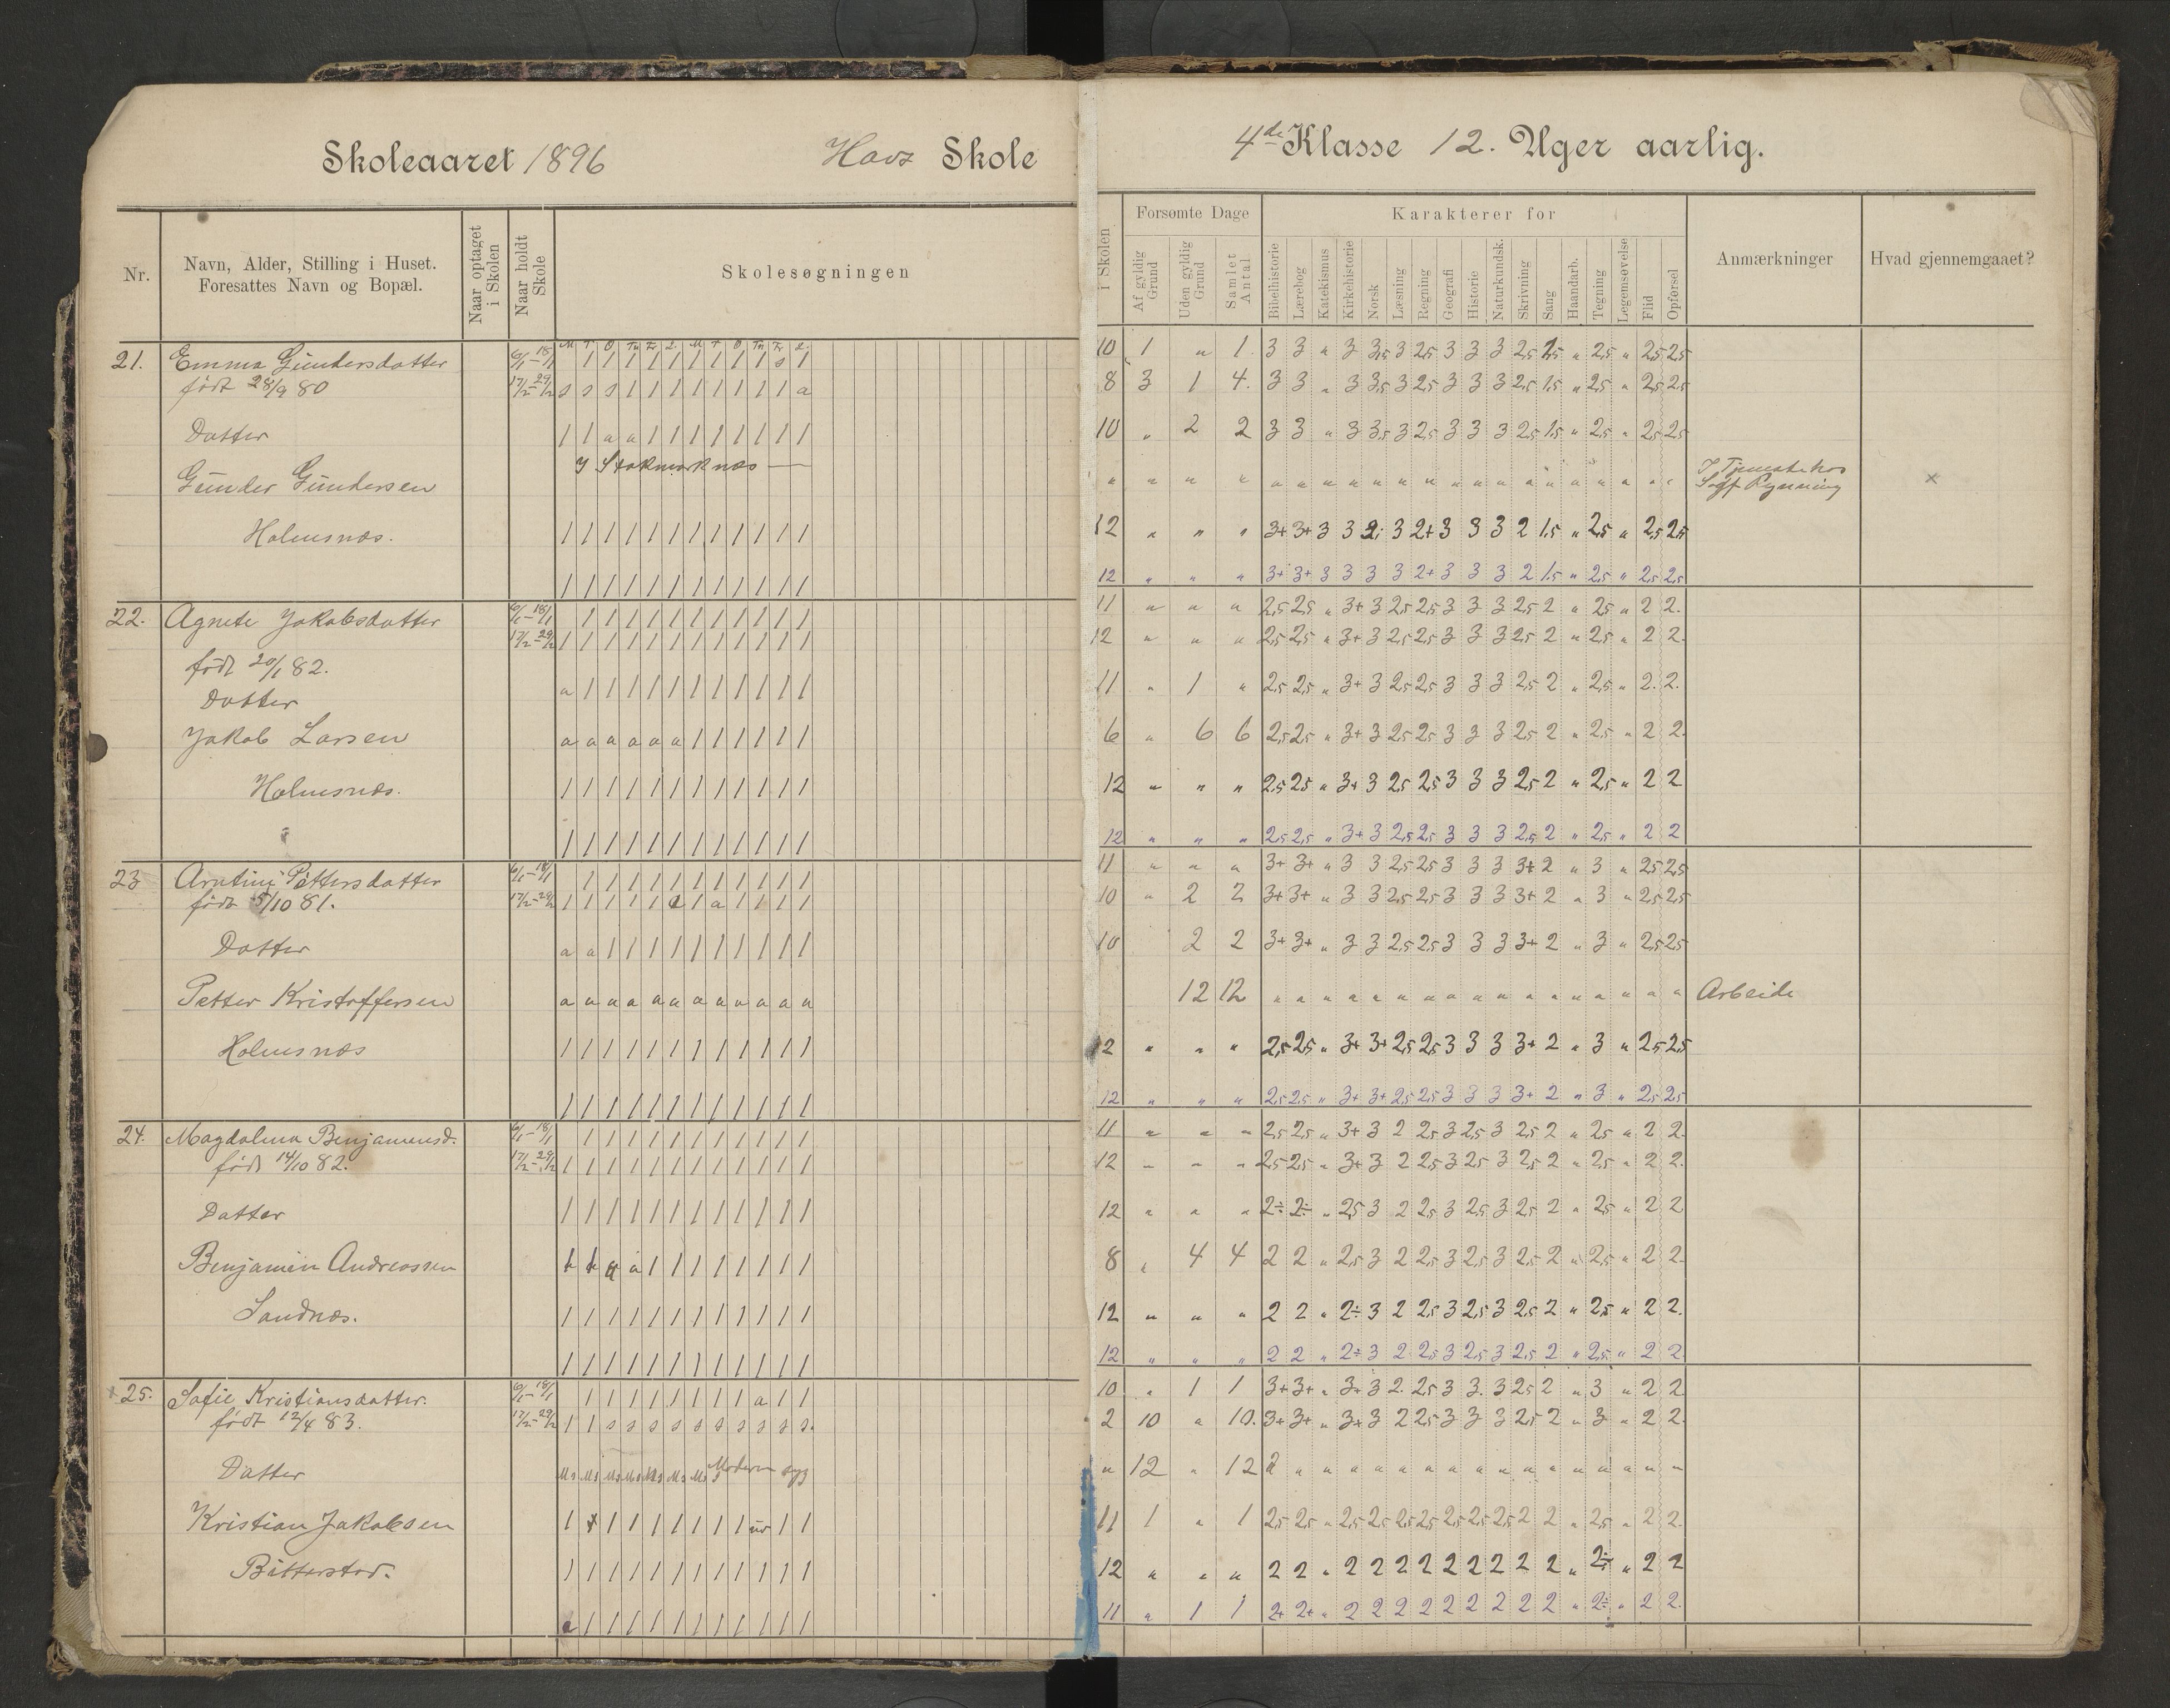 Skoleaaret 1896
Havs Skole
4de Klasse 12. Uger aarlig.
Nr.
Navn, Alder, Stilling i Huset.
Foresattes Navn og Bopæl.
Naar optaget
i Skolen
Naar holdt
Skole
Skolesøgningen
i Skolen
Forsømte Dage
Af gyldig
Grund
Uden gyldig
Grund
Samlet
Antal
Karakterer for
Bibelhistorie
Lærebog
Katekismus
Kirkehistorie
Norsk
Læsning
Regning
Geografi
Historie
Naturkundsk.
Skrivning
Sang
Haandarb.
Tegning
Legemsøvelse
Flid
Opførsel
Anmærkninger
Hvad gjennemgaaet?
M T O To F L M T O To F L
21. Emma Gundersdatter 6/1-18/1 1 1 1 1 1 1 1 1 1 s 1
10 1 " 1. 3 3 " 3 3,5 3 2,5 3 3 3 2,5 1,5 " 2,5 " 2,5 2,5
født 28/9 80 17/2-29/2 s s s 1 1 1 1 1 1 1 1 a
8 3 1 4. 3 3 " 3 3,5 3 2,5 3 3 3 2,5 1,5 " 2,5 " 2,5 2,5
Datter 1 1 a a 1 1 1 1 1 1 1 1
10 " 2 2 3 3 " 3 3,5 3 2,5 3 3 3 2,5 1,5 " 2,5 " 2,5 2,5
Gunder Gundersen I Stokmarknæs
" " " " " " " " " " " " " " " " " " " " " I Tjeneste hos
Rynning
Holmsnæs. 1 1 1 1 1 1 1 1 1 1 1 1
12 " " " 3+ 3+ 3 3 3 2+ 3 3 3 2 1,5 " 2,5 " 2,5 2,5
1 1 1 1 1 1 1 1 1 1 1 1
12 " " " 3+ 3+ 3 3 3 3 2+ 3 3 3 2 1,5 " 2,5 " 2,5 2,5
22. Agnete Jakobsdatter 6/1-18/1 1 1 1 1 1 1 1 1 1 1 1
11 " " " 2,5 2,5 " 3+ 3 2,5 2,5 3 3 3 2,5 2 " 2,5 " 2 2.
17/2-29/2 1 1 1 1 1 1 1 1 1 1 1 1
12 " " " 2,5 2,5 " 3+ 3 2,5 2,5 3 3 3 2,5 2 " 2,5 " 2 2.
født 20/1 82.
Datter a 1 1 1 1 1 1 1 1 1 1 1
11 " 1 " 2,5 2,5 " 3+ 3 2,5 2,5 3 3 3 2,5 2 " 2,5 " 2. 2.
Jakob Larsen a a a a a a 1 1 1 1 1 1
6 " 6 6 2,5 2,5 " 3+ 3 2,5 2,5 3 3 3 2,5 2 " 2,5 " 2 2.
Holmsnæs. 1 1 1 1 1 1 1 1 1 1 1 1
12 " " " 2,5 2,5 " 3+ 3 2,5 2,5 3 3 3 2,5 2 " 2,5 " 2 2
1 1 1 1 1 1 1 1 1 1 1 1
12 " " " 2,5 2,5 " 3+ 3 2,5 2,5 3 3 3 2,5 2 " 2,5 " 2 2
23 Arntine Pettersdatter 6/1-18/1 1 1 1 1 1 1 1 1 1 1 1
11 " " " 3+ 3+ " 3 3 2,5 2,5 3 3 3 3+ 2 " 3 " 2,5 2,5
født /10 81. 17/2-29/2 1 1 1 1 1 a 1 a 1 1 1 1
10 " 2 2 3+ 3+ " 3 3 2,5 2,5 3 3 3 3+ 2 " 3 " 2,5 2,5
Datter a a 1 1 1 1 1 1 1 1 1 1
10 2 2 3+ 3+ " 3 3 2,5 2,5 3 3 3 3+ 2 " 3 " 2,5 2,5
Petter Kristoffersen a a a a a a a a a a a a
12 12 " " " " " " " " " " " " " " " " " Arbeide
Holmsnæs 1 1 1 1 1 1 1 1 1 1 1 1
12 " " " 2,5 2,5 " 3+ 3+ 2,5 2,5 3 3 3 3+ 2 " 3 " 2,5 2,5
1 1 1 1 1 1 1 1 1 1 1 1
12 " " " 2,5 2,5 " 3+ 3+ 2,5 2,5 3 3 3 3+ 2 " 3 " 2,5 2,5
24. Magdalena Benjaminsd. 6/1-18/1 1 1 1 1 1 1 1 1 1 1 1
11 " " " 2,5 2,5 " 3+ 3 2 2,5 3 2,5 3 2,5 2 " 2,5 " 2 2.
født 14/10 82. 17/2-29/2 1 1 1 1 1 1 1 1 1 1 1 1
12 " " " 2,5 2,5 " 3+ 3 2 2,5 3 2,5 3 2,5 2 " 2,5 " 2 2.
Datter 1 1 1 1 1 1 1 1 1 1 1 1
12 " " " 2÷ 2÷ " 2,5 3 2 2,5 3 2,5 3 2,5 2 " 2,5 " 2 2
Benjamin Andreassen a a 1 1 1 1 1 1 1 1
8 " 4 4 2 2 " 2,5 3 2 2,5 3 2,5 3 2,5 2 " 2,5 " 2 2.
Sandnæs. 1 1 1 1 1 1 1 1 1 1 1 1
12 " " " 2 2 " 2÷ 3 2 2,5 3 2,5 3 2,5 2 " 2,5 " 2 2.
1 1 1 1 1 1 1 1 1 1 1 1
12 " " " 2 2 " 2÷ 3 2 2,5 3 2,5 3 2,5 2 " 2,5 " 2 2
25. Sofie Kristiansdatter. 6/1-18/1 1 1 1 1 1 1 1 1 a 1 1
10 " 1 1 3+ 3+ " 3+ 3 2. 2,5 3 3. 3 2,5 2 " 3 " 2 2.
født 12/4 83. 17/2-29/2 1 1 s s s s s s s s s s.
2 10 " 10. 3+ 3+ " 3+ 3 2 2,5 3 3 3 2,5 2 " 3 " 2 2.
Datter Ms Ms Ms Ms Ms Ms Ms Moderen syg
" 12 " 12 " " " " " " " " " " " " " " " "
Kristian Jakobsen 1 1 1 1 1 1 1 1 1 1
11 1 " 1 2,5 2,5 " 2,5 2,5 2,5 2,5 2,5 2,5 2,5 2 2 " 2,5 " 2 2.
Bitterstad. 1 1 1 1 1 1 1 1 1 1 1 1
12 " " " 2 2 " 2 2 2 2 2 2 2 2 2 " 2÷ " 2 2
a 1 1 1 1 1 1 1 1 1 1 1
11 " 1 1 2+ 2+ " 2 2 2 2 2 2 2 2 2 " 2÷ " 2 2.